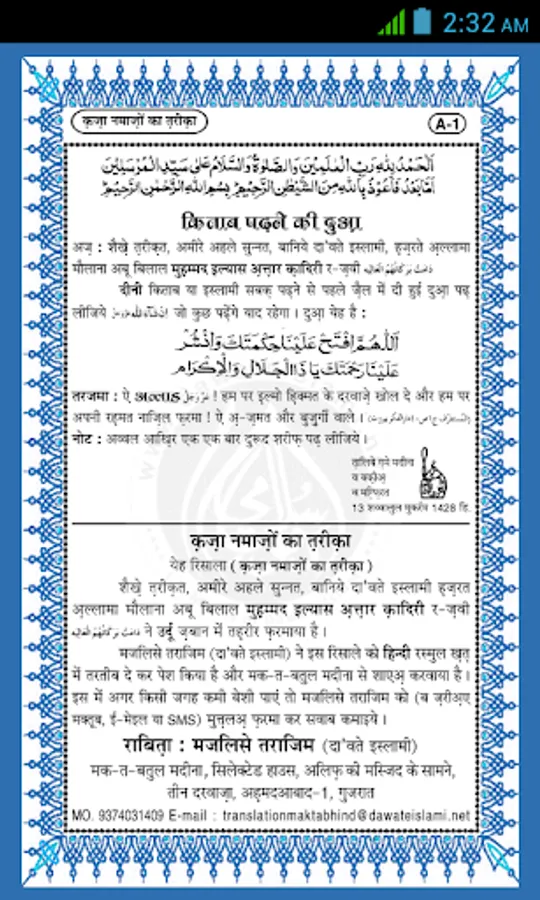 2:32 AM
क़ज़ा नमाज़ों का त़रीक़ा
A-1
اَلْحَمْدُ لِلّٰهِ رَبِّ الْعٰلَمِيْنَ وَالصَّلٰوةُ وَالسَّلَامُ عَلٰى سَيِّدِ الْمُرْسَلِيْنَ
اَمَّا بَعْدُ فَاَعُوْذُ بِاللّٰهِ مِنَ الشَّيْطٰنِ الرَّجِيْمِ بِسْمِ اللّٰهِ الرَّحْمٰنِ الرَّحِيْمِ
किताब पढ़ने की दुआ़
अज़ : शैखे़ त़रीक़त, अमीरे अहले सुन्नत, बानिये दा'वते इस्लामी, ह़ज़रते अ़ल्लामा
मौलाना अबू बिलाल मुह़म्मद इल्यास अ़त्त़ार क़ादिरी र-ज़वी دَامَتْ بَرَكَاتُهُمُ الْعَالِيَه
दीनी किताब या इस्लामी सबक़ पढ़ने से पहले ज़ैल में दी हुई दुआ़ पढ़
लीजिये اِنْ شَآءَ اللّٰه عَزَّوَجَلَّ जो कुछ पढ़ेंगे याद रहेगा । दुआ़ येह है :
اَللّٰهُمَّ افْتَحْ عَلَيْنَا حِكْمَتَكَ وَانْشُرْ
عَلَيْنَا رَحْمَتَكَ يَا ذَا الْجَلَالِ وَالْاِكْرَام
तरजमा : ऐ عَزَّوَجَلَّ ! हम पर इल्मो ह़िक्मत के दरवाज़े खोल दे और हम पर
अपनी रह़मत नाज़िल फ़रमा ! ऐ अ़-ज़मत और बुज़ुर्गी वाले ।
नोट : अव्वल आख़िर एक एक बार दुरूद शरीफ़ पढ़ लीजिये ।
त़ालिबे ग़मे मदीना
व बक़ीअ़
व मग़्फ़िरत
13 शव्वालुल मुकर्रम 1428 हि.
क़ज़ा नमाज़ों का त़रीक़ा
येह रिसाला ( क़ज़ा नमाज़ों का त़रीक़ा )
शैखे़ त़रीक़त, अमीरे अहले सुन्नत, बानिये दा'वते इस्लामी ह़ज़रत
अ़ल्लामा मौलाना अबू बिलाल मुह़म्मद इल्यास अ़त्त़ार क़ादिरी र-ज़वी
دَامَتْ بَرَكَاتُهُمُ الْعَالِيَه ने उर्दू ज़बान में तह़रीर फ़रमाया है ।
मजलिसे तराजिम (दा'वते इस्लामी) ने इस रिसाले को हिन्दी रस्मुल ख़त़
में तरतीब दे कर पेश किया है और मक-त-बतुल मदीना से शाएअ़ करवाया है ।
इस में अगर किसी जगह कमी बेशी पाएं तो मजलिसे तराजिम को (ब ज़रीअ़ए
मक्तूब, ई-मेइल या SMS) मुत़्त़लअ़ फ़रमा कर सवाब कमाइये ।
राबित़ा : मजलिसे तराजिम (दा'वते इस्लामी)
मक-त-बतुल मदीना, सिलेक्टेड हाउस, अलिफ़ की मस्जिद के सामने,
तीन दरवाज़ा, अह़मदआबाद-1, गुजरात
MO. 9374031409 E-mail : translationmaktabhind@dawateislami.net